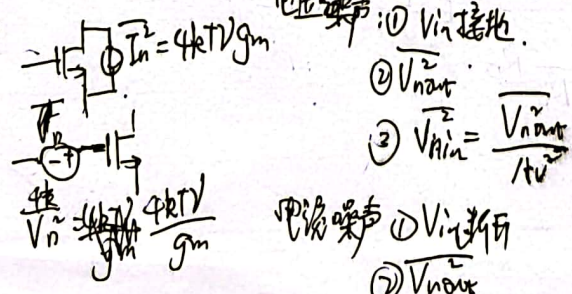 I̅n² = 4kTγgm
Vn² = 4kTγ/gm
电压噪声:① Vin接地.
② Vnout²
③ Vnin² = Vnout²/Av²
电流噪声 ① Vin断开
② Vnout²